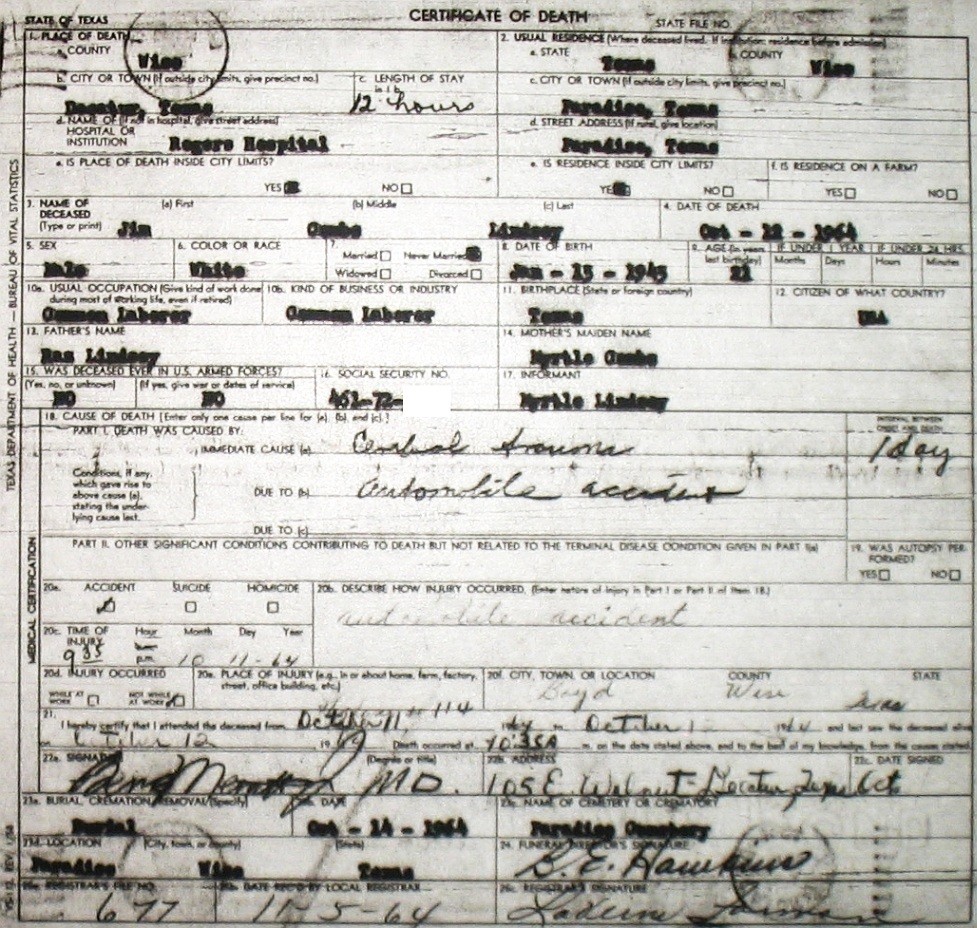 CERTIFICATE OF DEATH
STATE OF TEXAS STATE FILE NO.
1. PLACE OF DEATH 2. USUAL RESIDENCE (Where deceased lived. If institution: residence before admission)
a. COUNTY a. STATE b. COUNTY
Wise Texas Wise
b. CITY OR TOWN (If outside city limits, give precinct no.) c. LENGTH OF STAY in 1 b. c. CITY OR TOWN (If outside city limits, give precinct no.)
Decatur, Texas 12 hours Paradise, Texas
d. NAME OF (If not in hospital, give street address) d. STREET ADDRESS (If rural, give location)
HOSPITAL OR
INSTITUTION Rogers Hospital Paradise, Texas
e. IS PLACE OF DEATH INSIDE CITY LIMITS? e. IS RESIDENCE INSIDE CITY LIMITS? f. IS RESIDENCE ON A FARM?
YES NO YES NO YES NO
3. NAME OF DECEASED (a) First (b) Middle (c) Last 4. DATE OF DEATH
(Type or print) Jim Combs Lindsey Oct - 12 - 1964
5. SEX 6. COLOR OR RACE 7. Married Never Married 8. DATE OF BIRTH 9. AGE (In years last birthday) IF UNDER 1 YEAR IF UNDER 24 HRS.
Months Days Hours Minutes
Male White Widowed Divorced Jan - 13 - 1943 21
10a. USUAL OCCUPATION (Give kind of work done during most of working life, even if retired) 10b. KIND OF BUSINESS OR INDUSTRY 11. BIRTHPLACE (State or foreign country) 12. CITIZEN OF WHAT COUNTRY?
Common Laborer Common Laborer Texas USA
13. FATHER'S NAME 14. MOTHER'S MAIDEN NAME
Lindsey Myrtle Combs
15. WAS DECEASED EVER IN U.S. ARMED FORCES? 16. SOCIAL SECURITY NO. 17. INFORMANT
(Yes, no, or unknown) (If yes, give war or dates of service)
NO NO 461-72- Myrtle Lindsey
18. CAUSE OF DEATH [Enter only one cause per line for (a), (b), and (c).] INTERVAL BETWEEN ONSET AND DEATH
PART I. DEATH WAS CAUSED BY:
IMMEDIATE CAUSE (a) Cerebral trauma 1 day
Conditions, if any,
which gave rise to
above cause (a),
stating the under-
lying cause last.
DUE TO (b) automobile accident
DUE TO (c)
PART II. OTHER SIGNIFICANT CONDITIONS CONTRIBUTING TO DEATH BUT NOT RELATED TO THE TERMINAL DISEASE CONDITION GIVEN IN PART I(a) 19. WAS AUTOPSY PERFORMED?
YES NO
20a. ACCIDENT SUICIDE HOMICIDE 20b. DESCRIBE HOW INJURY OCCURRED. (Enter nature of injury in Part I or Part II of item 18.)
automobile accident
20c. TIME OF INJURY Hour Month Day Year
9 35 p.m. 10 11-64
20d. INJURY OCCURRED 20e. PLACE OF INJURY (e.g., in or about home, farm, factory, street, office building, etc.) 20f. CITY, TOWN, OR LOCATION COUNTY STATE
WHILE AT WORK NOT WHILE AT WORK 114 Boyd Wise Texas
21. I hereby certify that I attended the deceased from October 11 1964 October 1 1964 and last saw the deceased
October 12 19 64 Death occurred at 10:35A m. on the date stated above, and to the best of my knowledge, from the causes stated
22a. SIGNATURE (Degree or title) 22b. ADDRESS 22c. DATE SIGNED
MD. 105 E. Walnut - Decatur, Texas Oct
23a. BURIAL, CREMATION, REMOVAL (Specify) 23b. DATE 23c. NAME OF CEMETERY OR CREMATORY
Burial Oct - 14 - 1964 Paradise Cemetery
23d. LOCATION (City, town, or county) (State) 24. FUNERAL DIRECTOR'S SIGNATURE
Paradise Wise Texas B.E. Hawkins
25a. REGISTRAR'S FILE NO. 25b. DATE REC'D BY LOCAL REGISTRAR 25c. REGISTRAR'S SIGNATURE
677 11-5-64
TEXAS DEPARTMENT OF HEALTH — BUREAU OF VITAL STATISTICS
MEDICAL CERTIFICATION
REV. 1/58